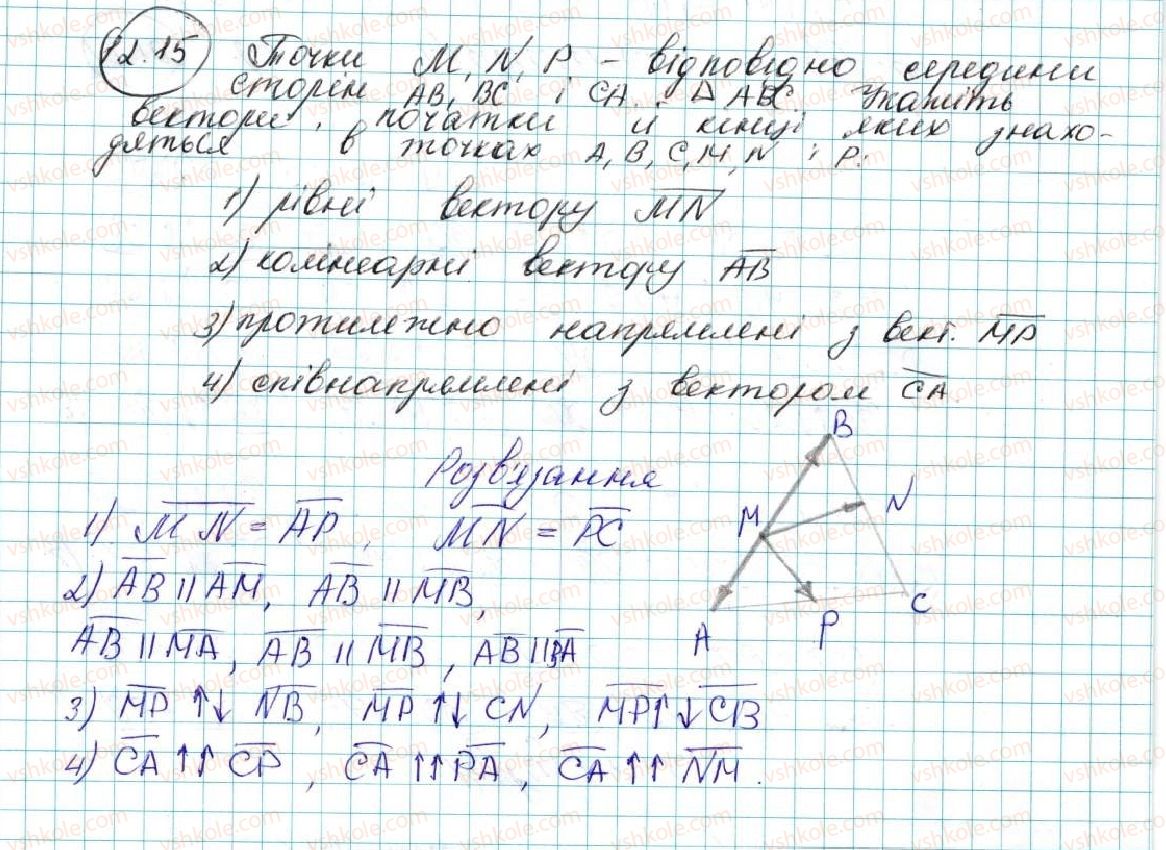 12.15 Точки M, N, P – відповідно середини
сторін AB, BC і CA. Δ ABC. Укажіть
вектори, початки й кінці яких знахо-
дяться в точках A, B, C, M, N і P:
1) рівні вектору MN
2) колінеарні вектору AB
3) протилежно напрямлені з вект. MP
4) співнапрямлені з вектором CA.
Розв'язання
1) MN = AP, MN = PC
2) AB || AM, AB || MB,
AB || MA, AB || MB, AB || BA
3) MP ↑↓ NB, MP ↑↓ CN, MP ↑↓ CB
4) CA ↑↑ CP, CA ↑↑ PA, CA ↑↑ NM.
B
N
M
C
A
P
vshkole.com